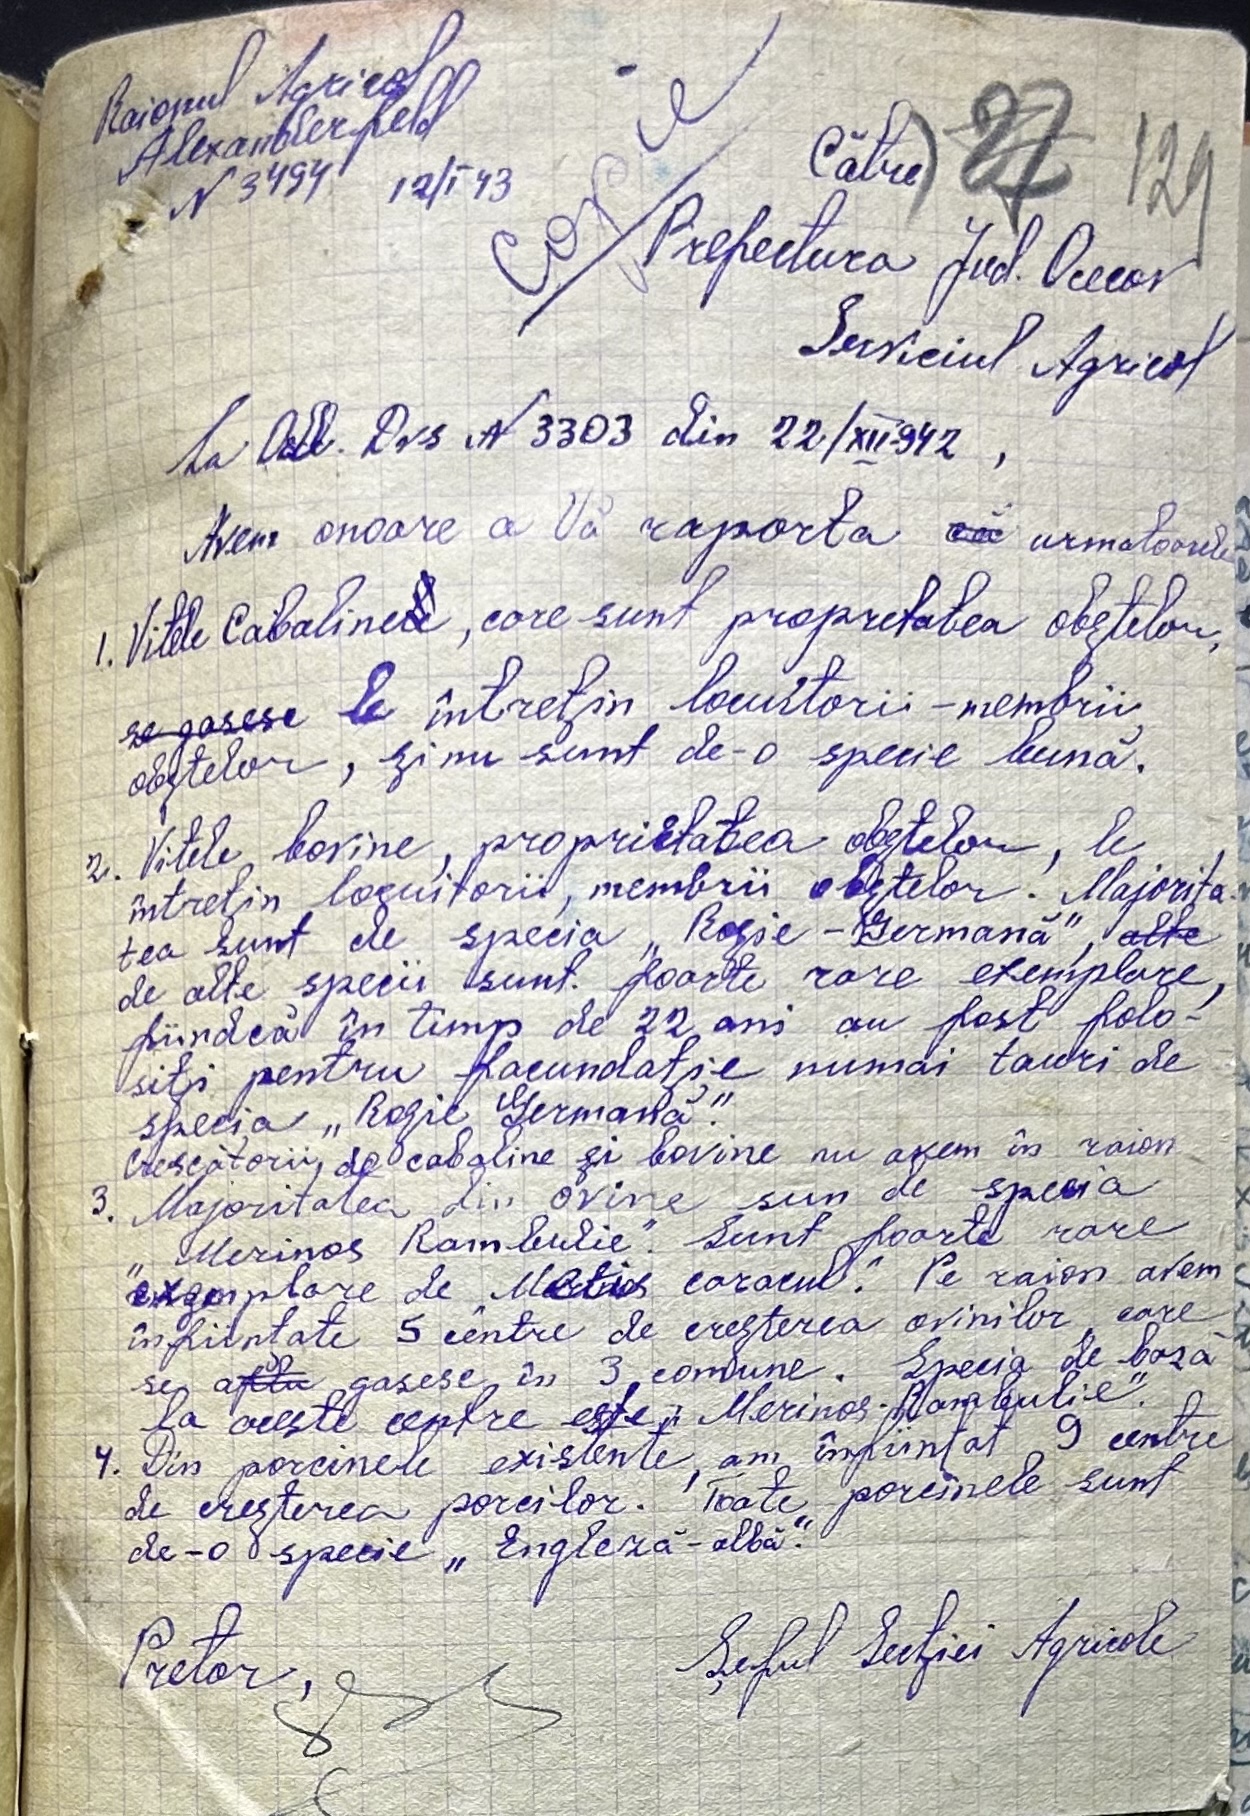 Raionul Agricol
Alexanderfeld
N 3494 12/I 43
Copie
Către
27
129
Prefectura Jud. Oceacov
Serviciul Agricol
La Ord. Dvs N 3303 din 22/XII-942,
Avem onoare a Vă raporta că urmatoarele
1. Vitele Cabaline, care sunt propretatea obștelor,
se gasesc le întrețin locuitorii-membrii
obștelor, și nu sunt de-o specie bună.
2. Vitele bovine, proprietatea obștelor, le
întrețin locuitorii, membrii obștelor. Majorita-
tea sunt de specia „Roșie-Germană", alte
de alte specii sunt foarte rare exemplare,
fiindcă în timp de 22 ani au fost folo-
siți pentru facundație numai tauri de
specia „Roșie Germană".
Crescătorii de cabaline și bovine nu avem în raion
3. Majoritatea din ovine sun de specia
„Merinos Rambulie". Sunt foarte rare
exemplare de caracul". Pe raion avem
înfiintate 5 centre de creșterea ovinilor, care
se află gasesc în 3 comune. Specia de bază
la aceste centre este „Merinos-Rambulie".
4. Din porcinele existente, am înființat 9 centre
de creșterea porcilor. Toate porcinele sunt
de-o specie „Engleză-albă".
Pretor,
Șeful Secției Agricole